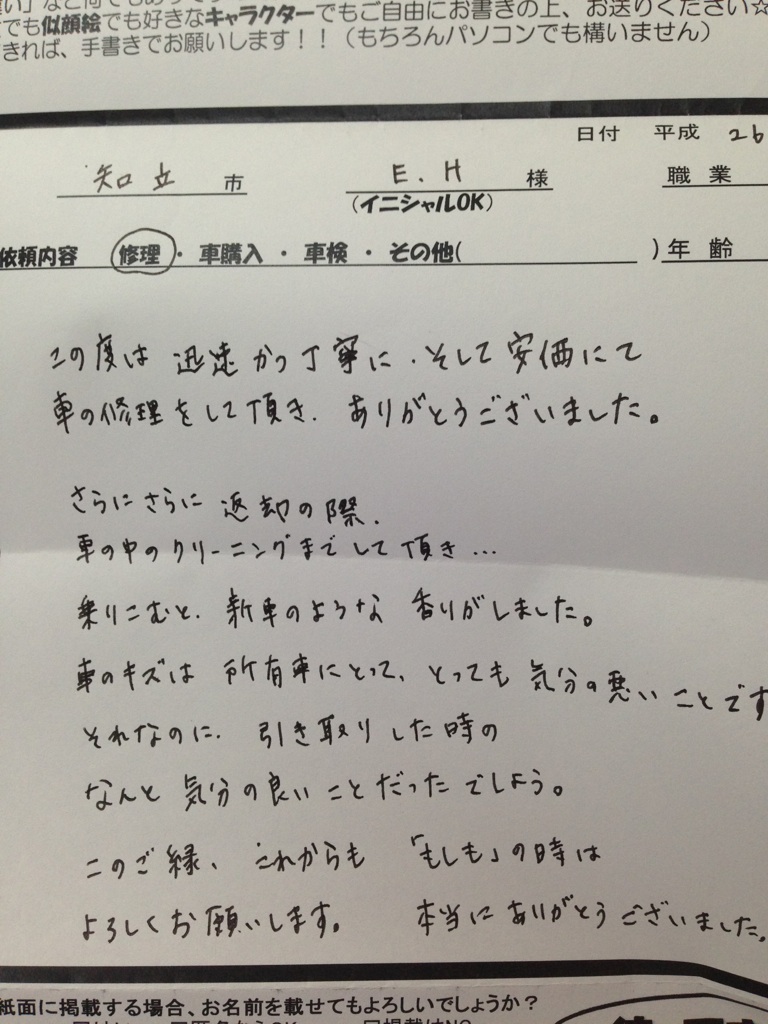 でも似顔絵でも好きなキャラクターでもご自由にお書きの上、お送りください☆
きれば、手書きでお願いします！！（もちろんパソコンでも構いません）
日付 平成 26
知立 市 E.H 様 職業
(イニシャルOK)
依頼内容 修理・車購入・車検・その他( )年齢
この度は 迅速かつ丁寧に、そして安価にて
車の修理をして頂き、ありがとうございました。
さらにさらに 返却の際、
車の中のクリーニングまでして頂き…
乗りこむと、新車のような 香りがしました。
車のキズは 所有車にとって、とっても 気分の悪いことです
それなのに、引き取りした時の
なんと 気分の良いことだったでしょう。
このご縁、これからも 「もしも」の時は
よろしくお願いします。 本当にありがとうございました。
紙面に掲載する場合、お名前を載せてもよろしいでしょうか？